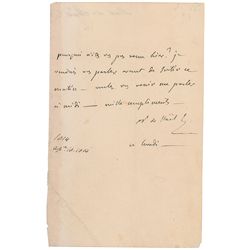 pourquoi n'êtes vs pas venu hier? je
voudrais vs parler avant de sortir ce
matin — voulez vs venir me parler
à midi — mille compliments —
de Staël
1814
ce lundi —